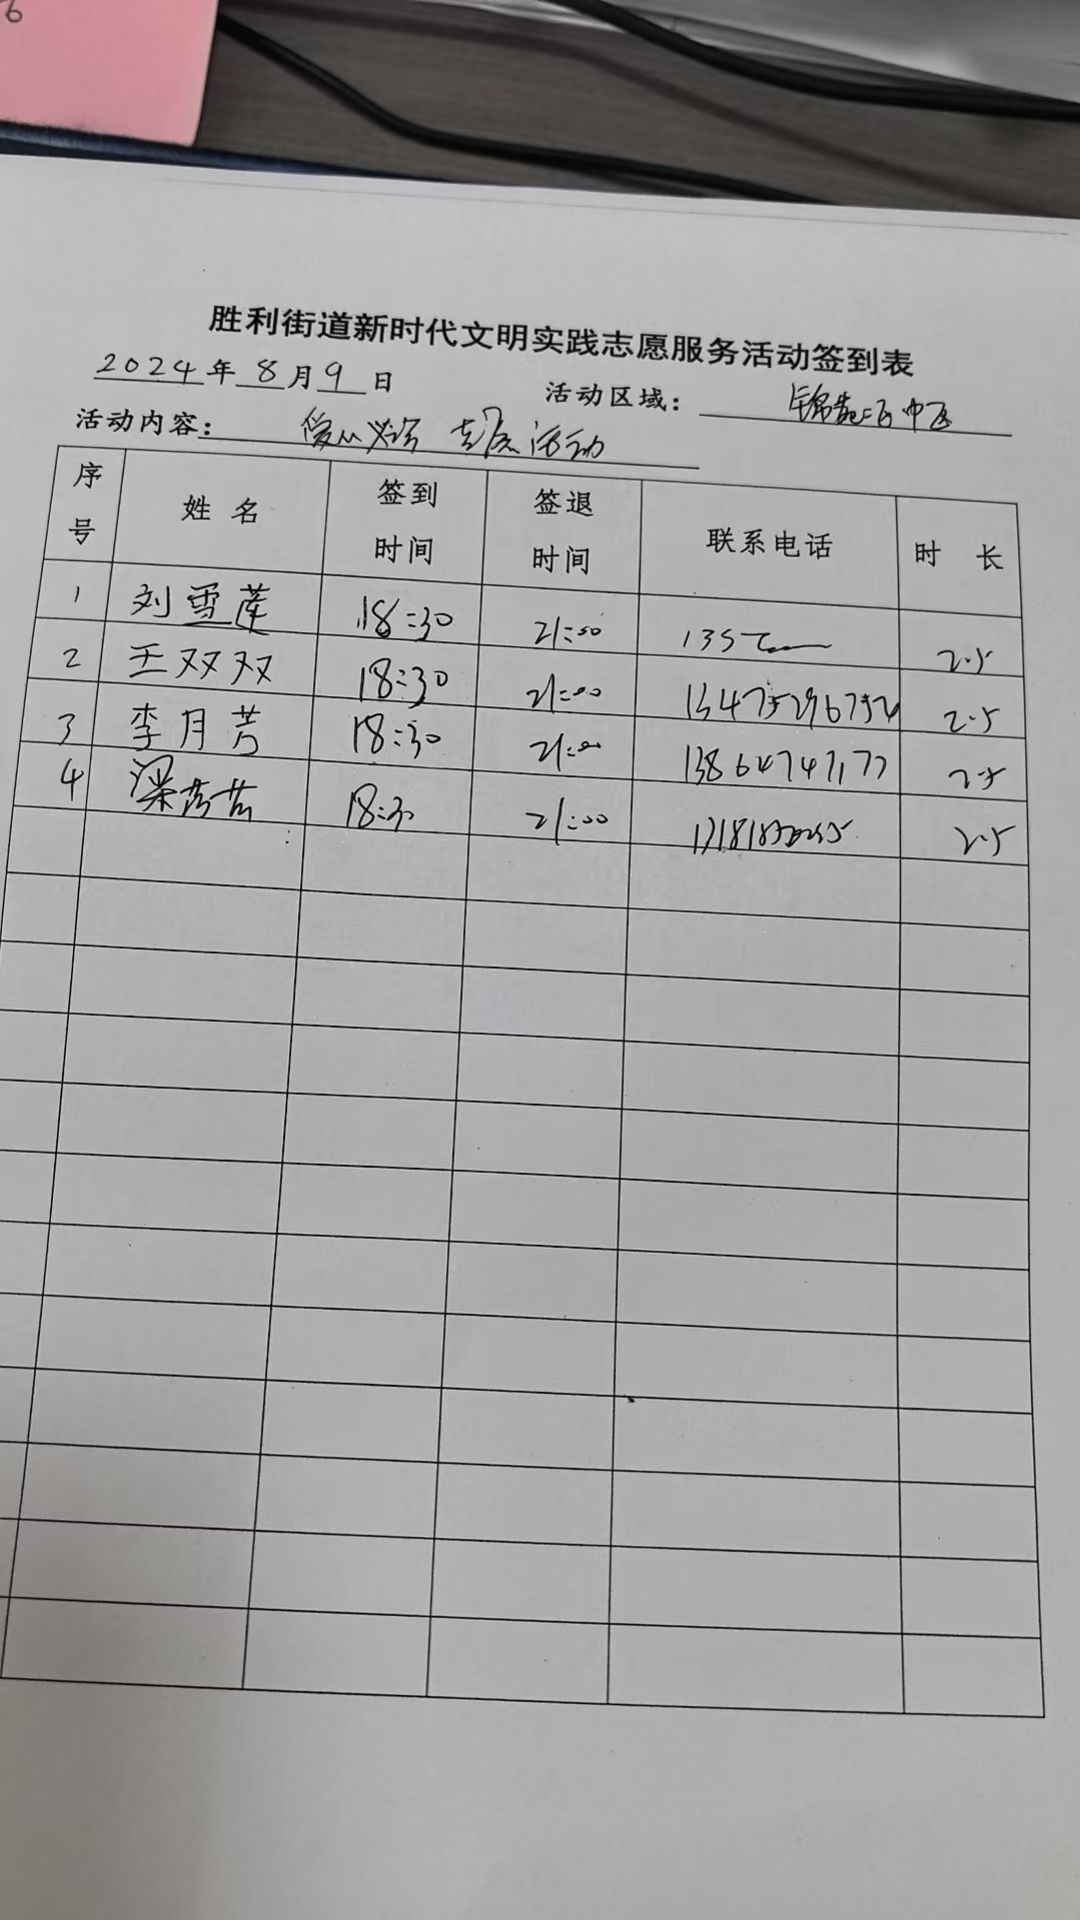 6
胜利街道新时代文明实践志愿服务活动签到表
2024年8月9日 活动区域：锦苑二区中区
活动内容： 志愿活动
序号 姓名 签到时间 签退时间 联系电话 时长
1 刘雪莲 18:30 21:00 135 2.5
2 王双双 18:30 21:00 13475296752 2.5
3 李月芳 18:30 21:00 2.5
4 梁 18:30 21:00 2.5